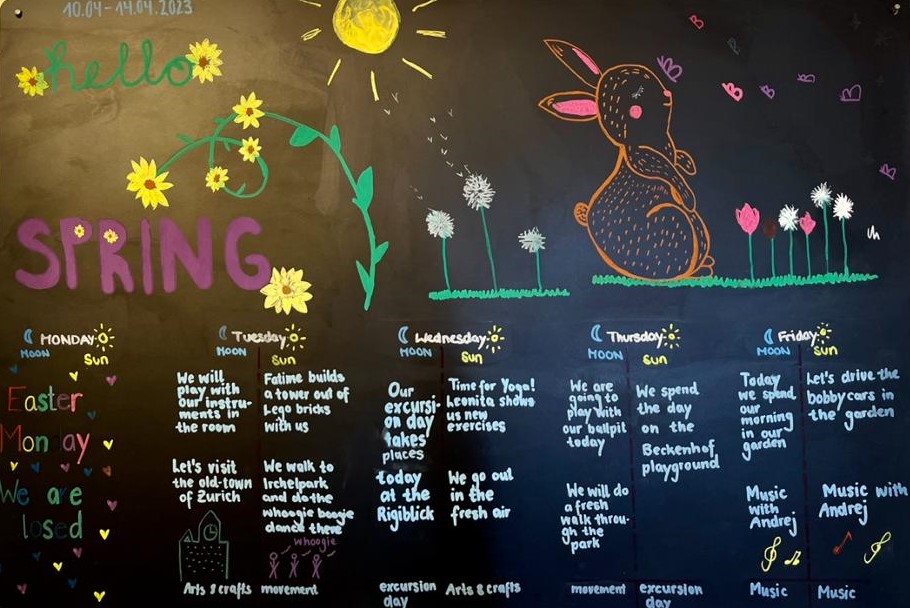 10.04 - 14.04.2023
hello
SPRING
MONDAY
MOON
Sun
Easter
Monday
We are
losed
Tuesday
MOON
Sun
We will
play with
our instru-
ments in
the room
Let's visit
the old-town
of Zurich
Arts & crafts
Fatime builds
a tower out of
Lego bricks
with us
We walk to
Irchelpark
and do the
whoogie boogie
dance there
whoogie
movement
Wednesday
MOON
Sun
Our
excursi-
on day
takes
places
today
at the
Rigiblick
excursion
day
Time for Yoga!
Leonita shows
us new
exercises
We go out
in the
fresh air
Arts & crafts
Thursday
MOON
Sun
We are
going to
play with
our ballpit
today
We will do
a fresh
walk throu-
gh the
park
movement
We spend
the day
on the
Beckenhof
playground
excursion
day
Friday
MOON
Sun
Today
we spend
our
morning
in our
garden
Music
with
Andrej
Music
Let's drive the
bobby cars in
the garden
Music with
Andrej
Music